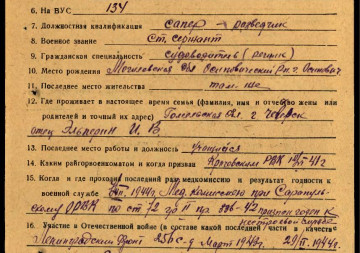 6. На ВУС 134
7. Должностная квалификация сапер – разведчик
8. Военное звание Ст. сержант
9. Гражданская специальность судоводитель (речник)
10. Место рождения Могилевская обл. Осиповический р-н г. Осипович
11. Последнее место жительства там же
12. Где проживает в настоящее время семья (фамилия, имя и отчество жены или
родителей и точный их адрес) Гомельская обл. г.
отец Эльперин И. В.
13. Последнее место работы и должность учащийся
14. Каким райгорвоенкоматом и когда призван Кировским РВК 41 г
15. Когда и где проходил раз. медкомиссию и результат годности к
военной службе 1944г. Мед. комиссия при Сарапуль-
скому ОРВК по ст. 72 гр II пр. 336-42 признан годен к
нестроевой службе
16. Участие в Отечественной войне (в составе последней части и в качестве
Ленинградский фронт 256 с-д март 1943г. 1944г.